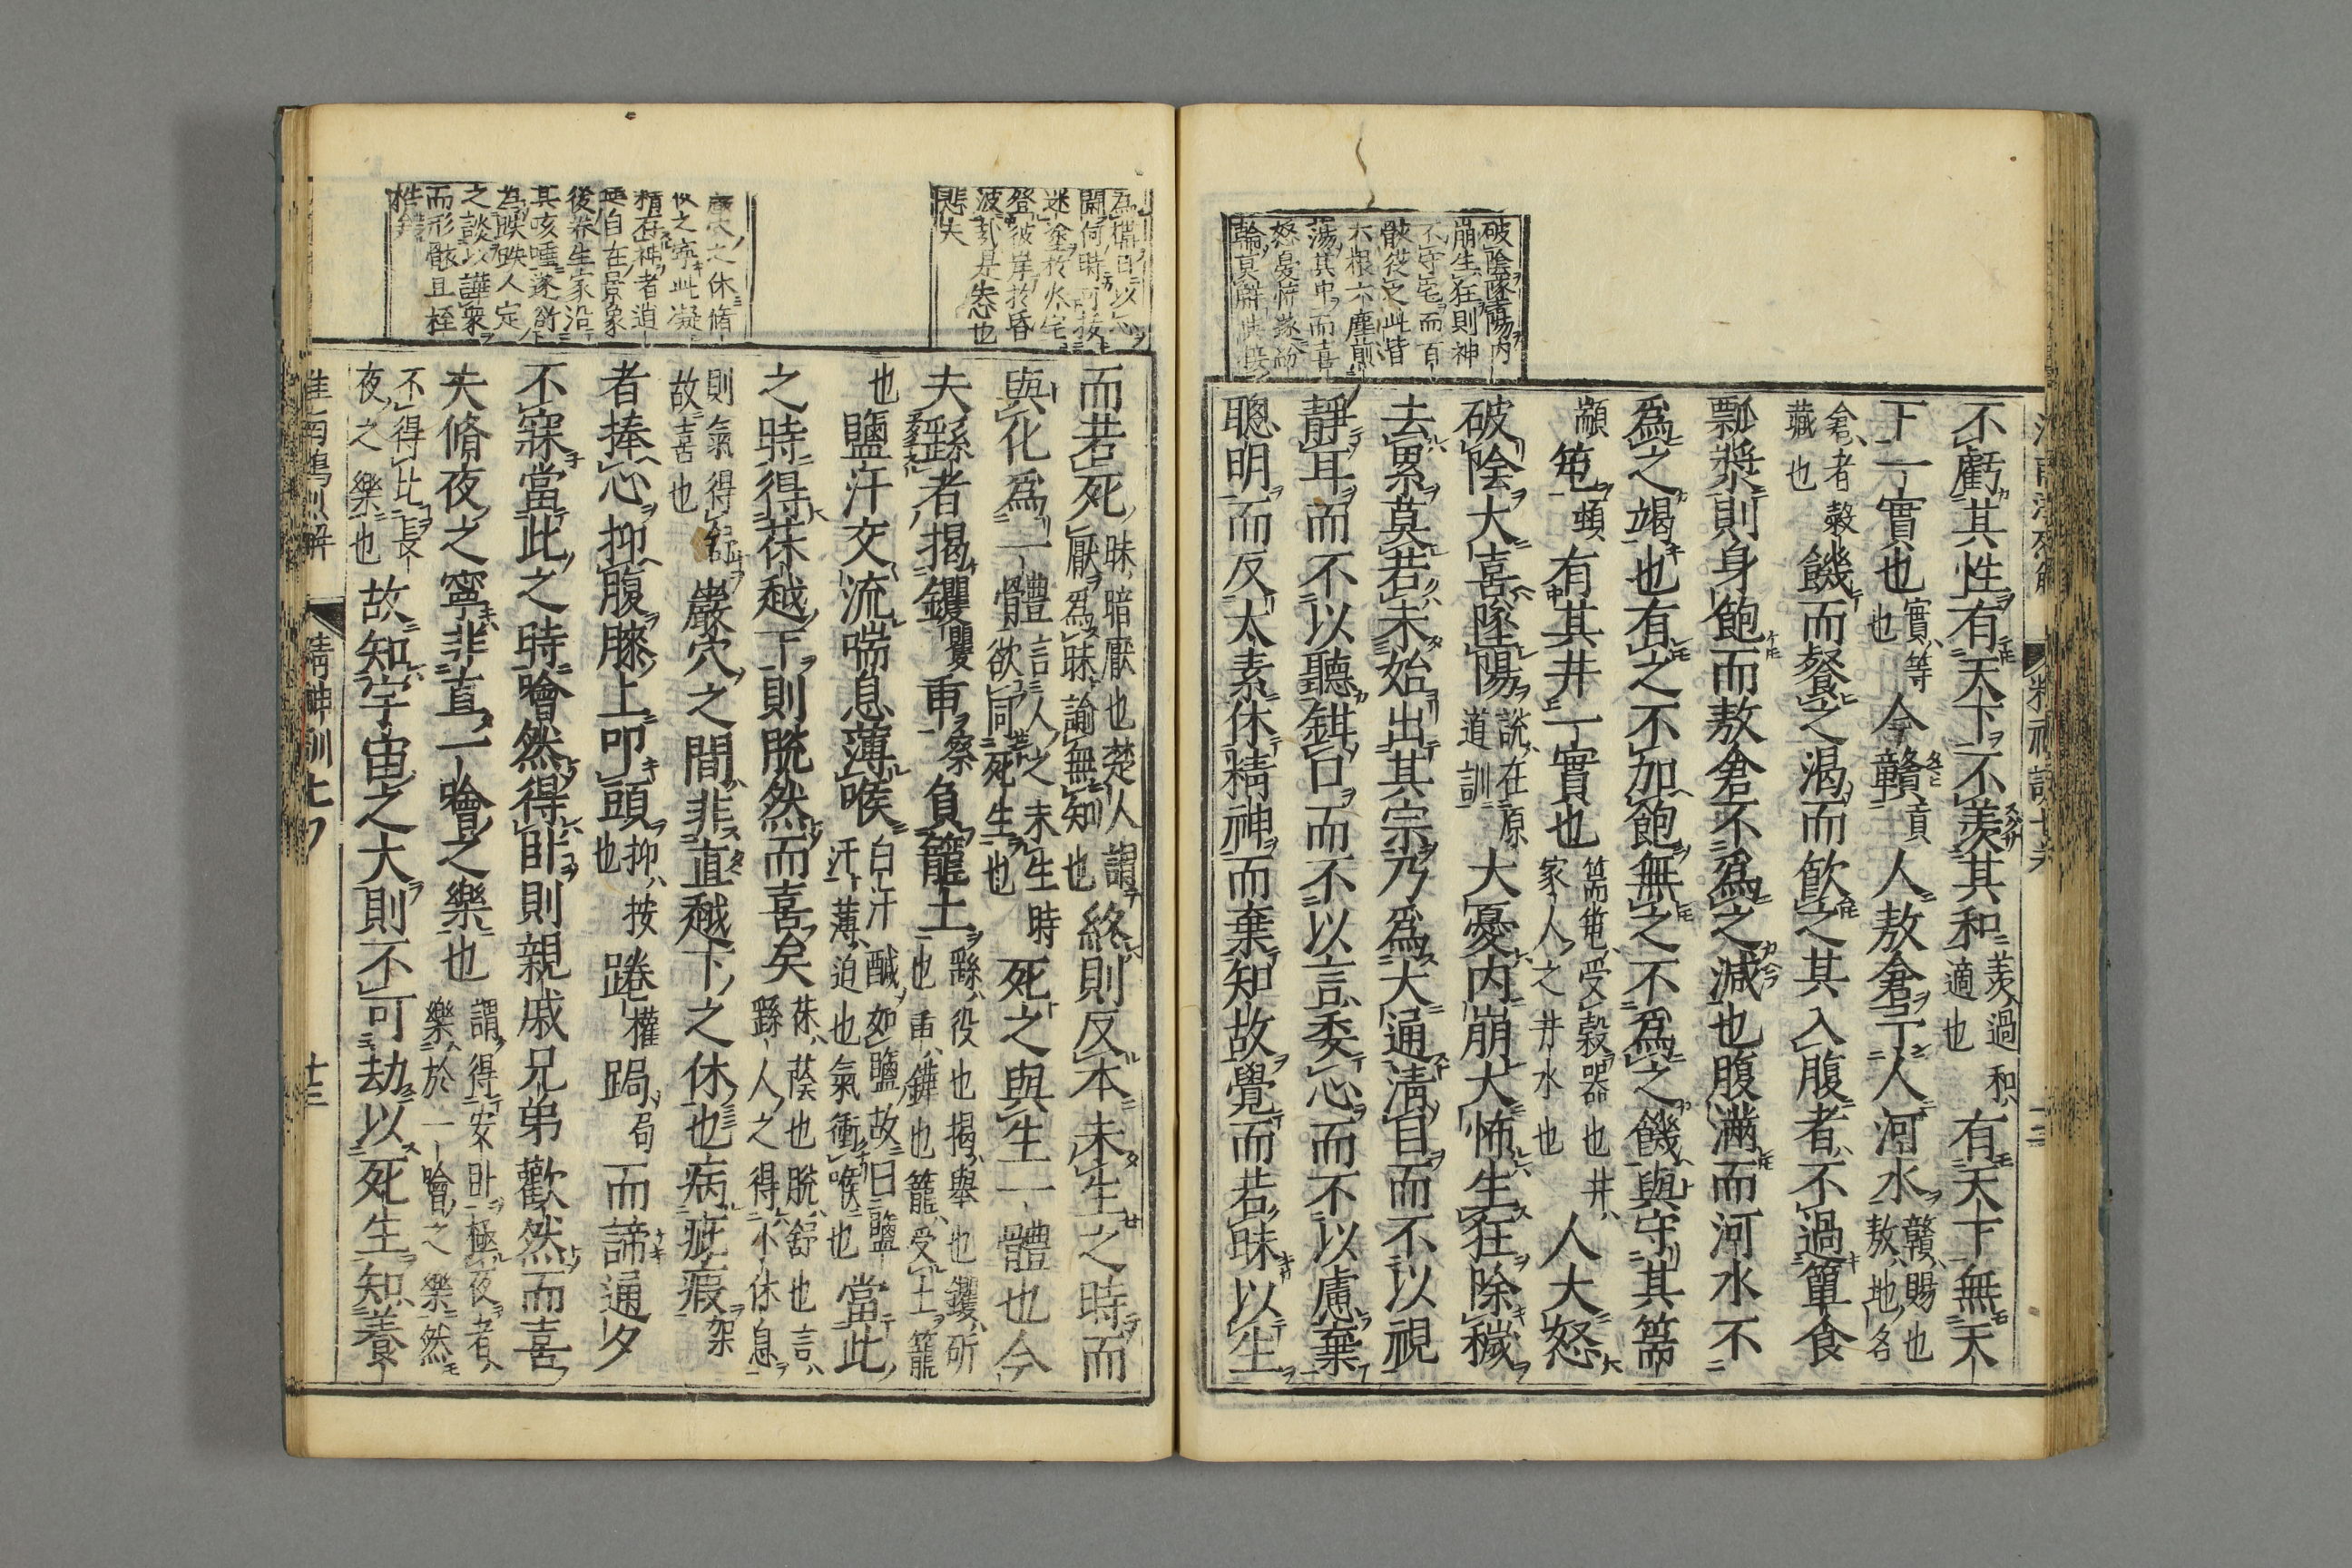 破陰墜陽內
崩生狂則神
不守宅而百
骸從之此皆
六根六塵煎
蕩其中而喜
怒憂怖遂紛
不虧其性有天下不羨其和羨過和適也有天下無天
下一實也實等也今贛貢人敖倉予人河水贛賜也敖地名
倉者穀藏也饑而餐之渴而飮之其入腹者不過簞食
瓢漿則身飽而敖倉不爲之減也腹滿而河水不
爲之竭也有之不加飽無之不爲之饑與守其篅
顓䇬頓有其井一實也篅䇬受穀器也井家人之井水也人大怒
破陰大喜墜陽說在原道訓大憂內崩大怖生狂除穢
去累莫若未始出其宗乃爲大通淸目而不以視
靜耳而不以聽鉗口而不以言委心而不以慮棄
聰明而反太素休精神而棄知故覺而若昧以生
爲構日以心
鬪何時可拔
迷塗於火宅
登彼岸於昏
波哉是悲也
悲夫
之休脩
夜之寧此凝
精存神者逍
遙自在景象
後養生家沿
其咳唾遂衍
爲昳昳人定
之談以譁衆
而形骸且桎
梏錯
而若死昧暗厭也楚人謂厭爲昧諭無知也終則反本未生之時而
與化爲一體言人之未生時欲同死生也死之與生一體也今
夫繇者揭钁矍臿察負籠土繇役也揭舉也钁斫也臿鏵也籠受土籠
也鹽汗交流喘息薄喉白汗鹹如鹽故曰鹽汗薄迫也氣衝喉也當此
之時得茠越下則脫然而喜矣茠蔭也脫舒也言繇人之得小休息
則氣得舒故喜也巖穴之間非直越下之休也病疵瘕架
者捧心抑腹膝上叩頭抑按也踡權跼局而諦通夕
不寐當此之時噲然得臥則親戚兄弟歡然而喜
夫脩夜之寧非直一噲之樂也謂得安臥極夜者樂於一噲之樂然
不得比長夜之樂也故知宇宙之大則不可劫以死生知養
淮南鴻烈解　精神訓七　十三